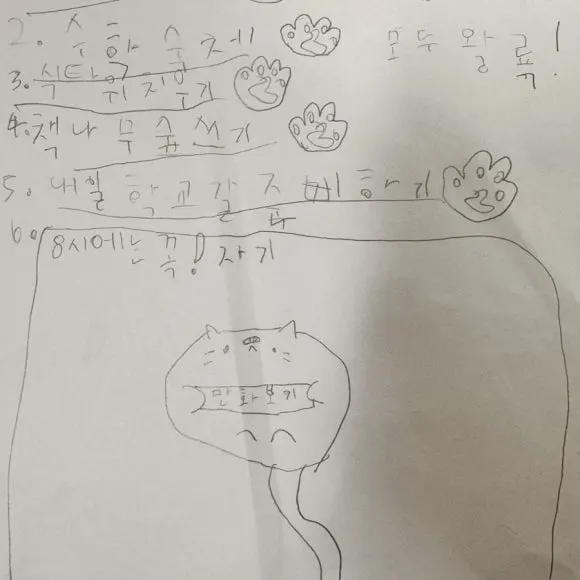 2. 수학 숙제 모두 완료!
3. 식탁 위 치우기
4. 책 나무 숲 쓰기
5. 내일 학교 갈 준비 하기
6. 8시에는 꼭! 자기
만화보기